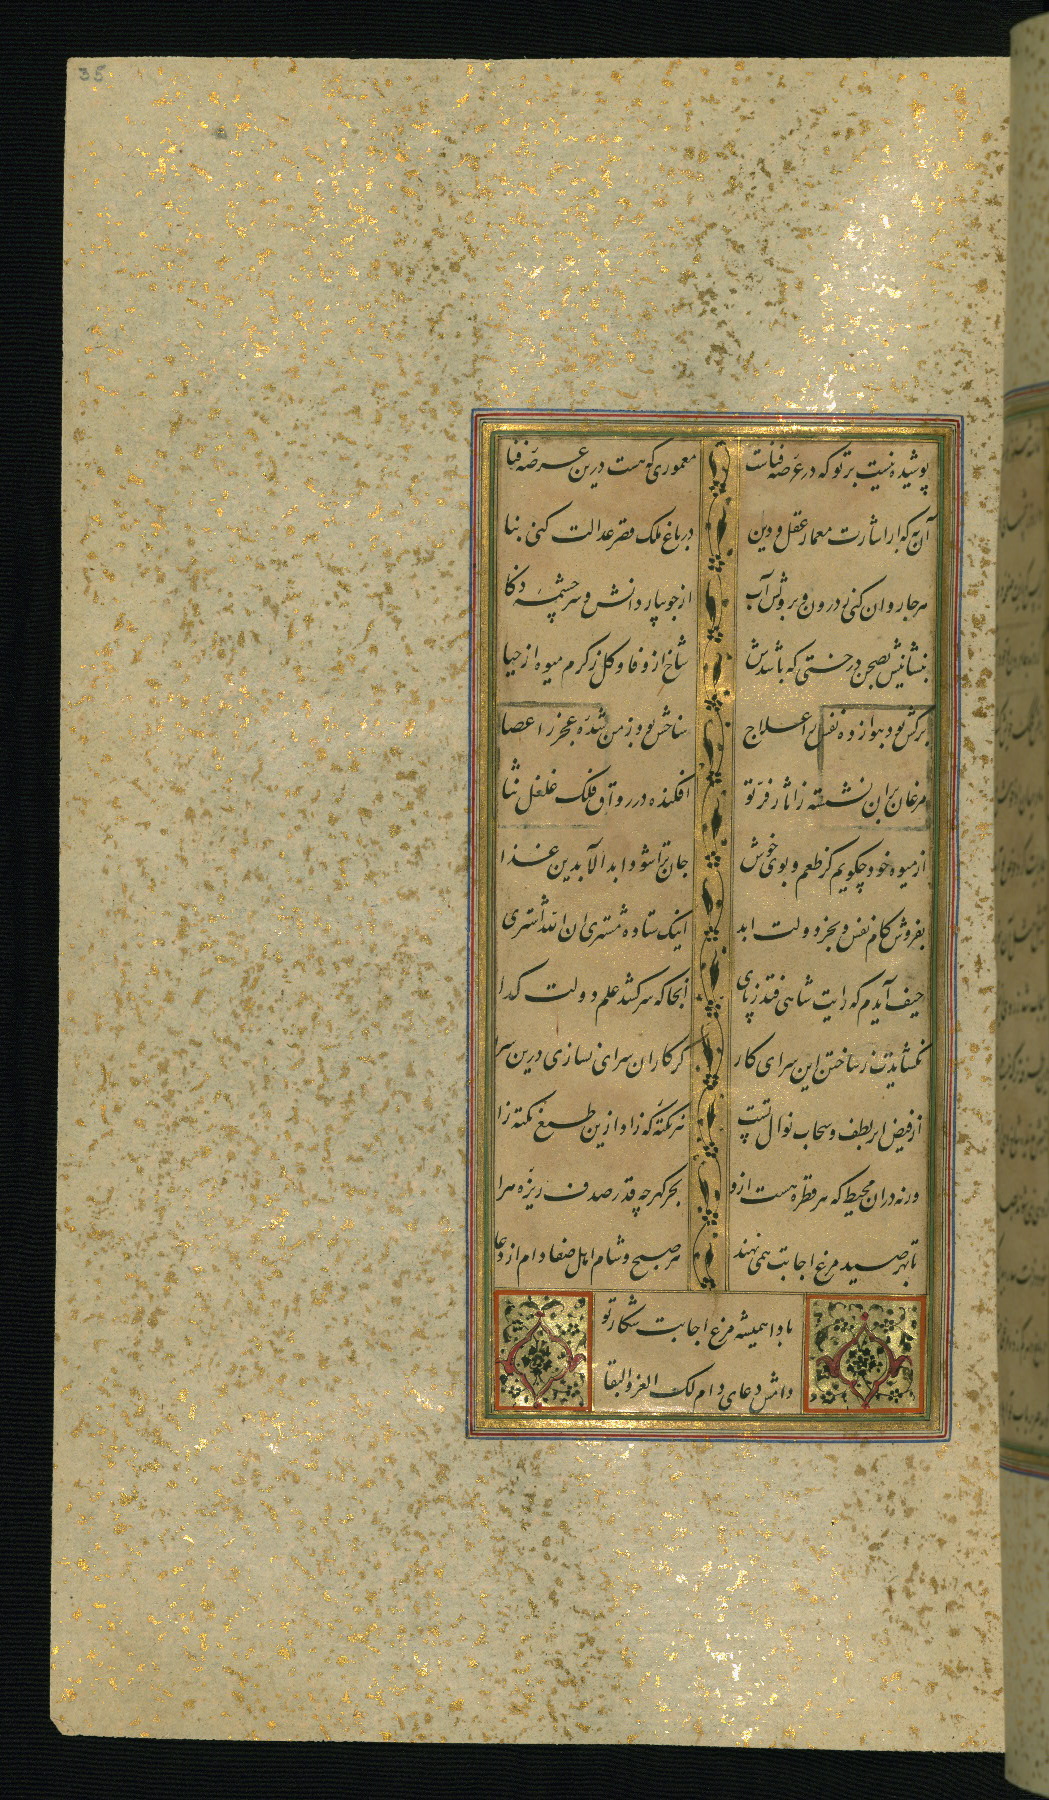 35
پوشیده نیست بر تو که در عرصه فناست
معموری که هست درین عرصه فنا
آن به که از اشارت معمار عقل و دین
در باغ ملک قصر عدالت کنی بنا
هر جا روان کنی ز درون و بروش آب
از جویبار دانش و سرچشمه ذکا
بنشانیش بصحن درختی که باشدش
شاخ از وفا و گل ز کرم میوه از حیا
برگش بود بنوازده نفس را علاج
شاخش بود ز من شده عجز را عصا
مرغان بران نشسته ز آثار فر تو
افکنده در رواق فلک غلغل ثنا
از میوه خود چگویم کز طعم و بوی خوش
جان ترا شود ابد الآبدین غذا
بفروش کام نفس و بخر دولت ابد
اینک ستاده مشتری ان الله اشتری
حیف آیدم که رایت شاهی فتد ز پای
آنجا که سر کشد علم دولت گدا
نگشایدت ز ساختن این سرای کار
گر کار آن سرای نسازی درین سرا
از فیض ابر لطف و سحاب نوال تست
هر نکته که زاد ازین طبع نکته زا
ورنه دران محیط که هر قطره هست ازو
بحر گهر چه قدر صدف ریزه مرا
تا بهر صید مرغ اجابت همی نهند
هر صبح و شام اهل صفا دام از دعا
بادا همیشه مرغ اجابت شکار تو
دامش دعای دام لک العز والبقا